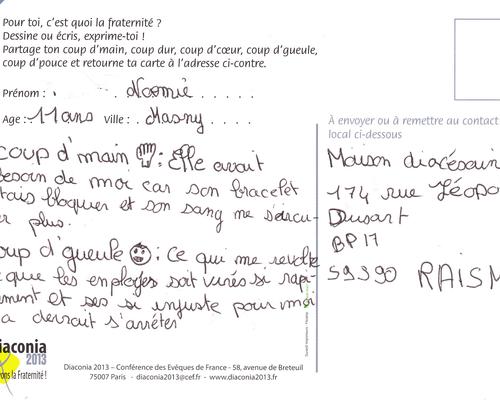 Pour toi, c'est quoi la fraternité ?
Dessine ou écris, exprime-toi !
Partage ton coup d'main, coup dur, coup d'cœur, coup d'gueule,
coup d'pouce et retourne ta carte à l'adresse ci-contre.
Prénom : Noemie
Age : 11 ans Ville : Masny
coup d'main : Elle avait
besoin de moi car son bracelet
tais bloquer et son sang ne s'ercu-
er plus.
oup d'gueule : ce qui me revolte
que les employes soit virés si rapi-
ement et ses si injuste pour moi
a devrait s'arréter
À envoyer ou à remettre au contact
local ci-dessous
Maison diocésain
174 rue Léopo
Dusart
BP 17
59390 RAISM
iaconia
2013
ons la Fraternité !
Diaconia 2013 – Conférence des Evêques de France - 58, avenue de Breteuil
75007 Paris - diaconia2013@cef.fr - www.diaconia2013.fr